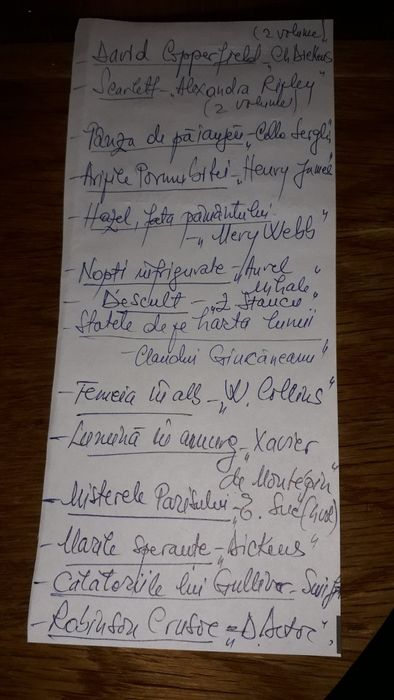 (2 volume)
- David Copperfield - „Ch. Dickens
- Scarlett - „Alexandra Ripley"
(2 volume)
- Pânza de păianjen - „Cella Serghi
- Aripile Porumbitei - „Henry James"
- Hazel, fata pământului
- „Mery Webb"
- Nopți înfrigurate - „Aurel
Mihale"
- Desculț - „Z. Stancu"
- Statele de pe harta lumii
- Claudiu Giurcăneanu"
- Femeia în alb - „W. Collins"
- Lumină în amurg - „Xavier
de Montepin"
- Misterele Parisului - „E. Sue
- Marile speranțe - „Dickens"
- Călătoriile lui Gulliver - Swift
- Robinson Crusoe - „D.